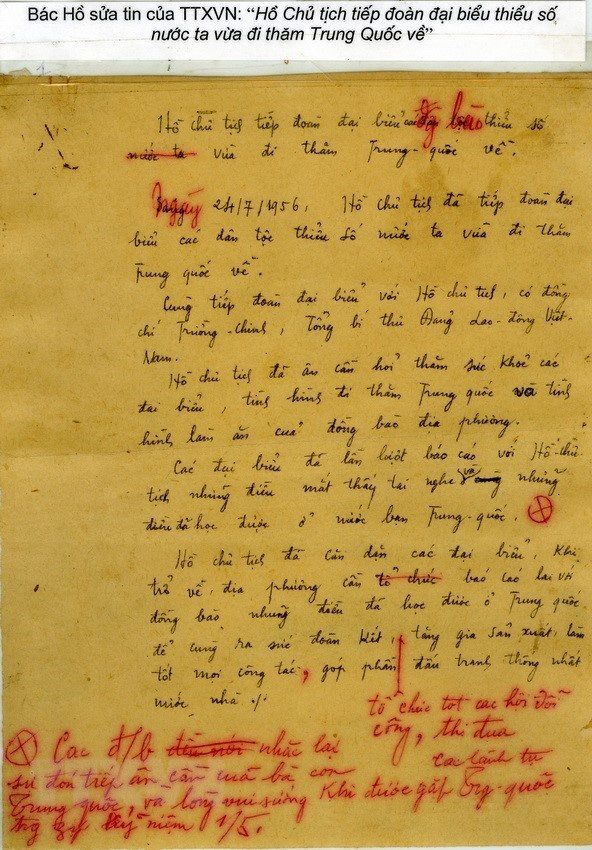 Bác Hồ sửa tin của TTXVN: “Hồ Chủ tịch tiếp đoàn đại biểu thiểu số
nước ta vừa đi thăm Trung Quốc về”
Hồ chủ tịch tiếp đoàn đại biểu đg bào thiểu số
nước ta vừa đi thăm Trung-quốc về.
Ngày 24/7/1956, Hồ chủ tịch đã tiếp đoàn đại
biểu các dân tộc thiểu số nước ta vừa đi thăm
Trung quốc về.
Cùng tiếp đoàn đại biểu với Hồ chủ tịch, có đồng
chí Trường-Chinh, Tổng bí thư Đảng Lao-động Việt-
Nam.
Hồ chủ tịch đã ân cần hỏi thăm sức khoẻ các
đại biểu, tình hình đi thăm Trung quốc và tình
hình làm ăn của đồng bào địa phương.
Các đại biểu đã lần lượt báo cáo với Hồ-chủ-
tịch những điều mắt thấy tai nghe và những
điều đã học được ở nước bạn Trung-quốc. ⊗
Hồ chủ tịch đã căn dặn các đại biểu, khi
trở về địa phương cần tổ chức báo cáo lại với
đồng bào những điều đã học được ở Trung quốc
để cùng ra sức đoàn kết, tăng gia sản xuất, làm
tốt mọi công tác, góp phần đấu tranh thống nhất
nước nhà ./.
tổ chức tốt các hội đổi
công, thi đua
⊗ Các đ/b nhắc lại
sự đón tiếp ân cần của bà con
Trung quốc, và lòng vui sướng khi được gặp các lãnh tụ Trg-quốc
trg dịp kỷ niệm 1/5.